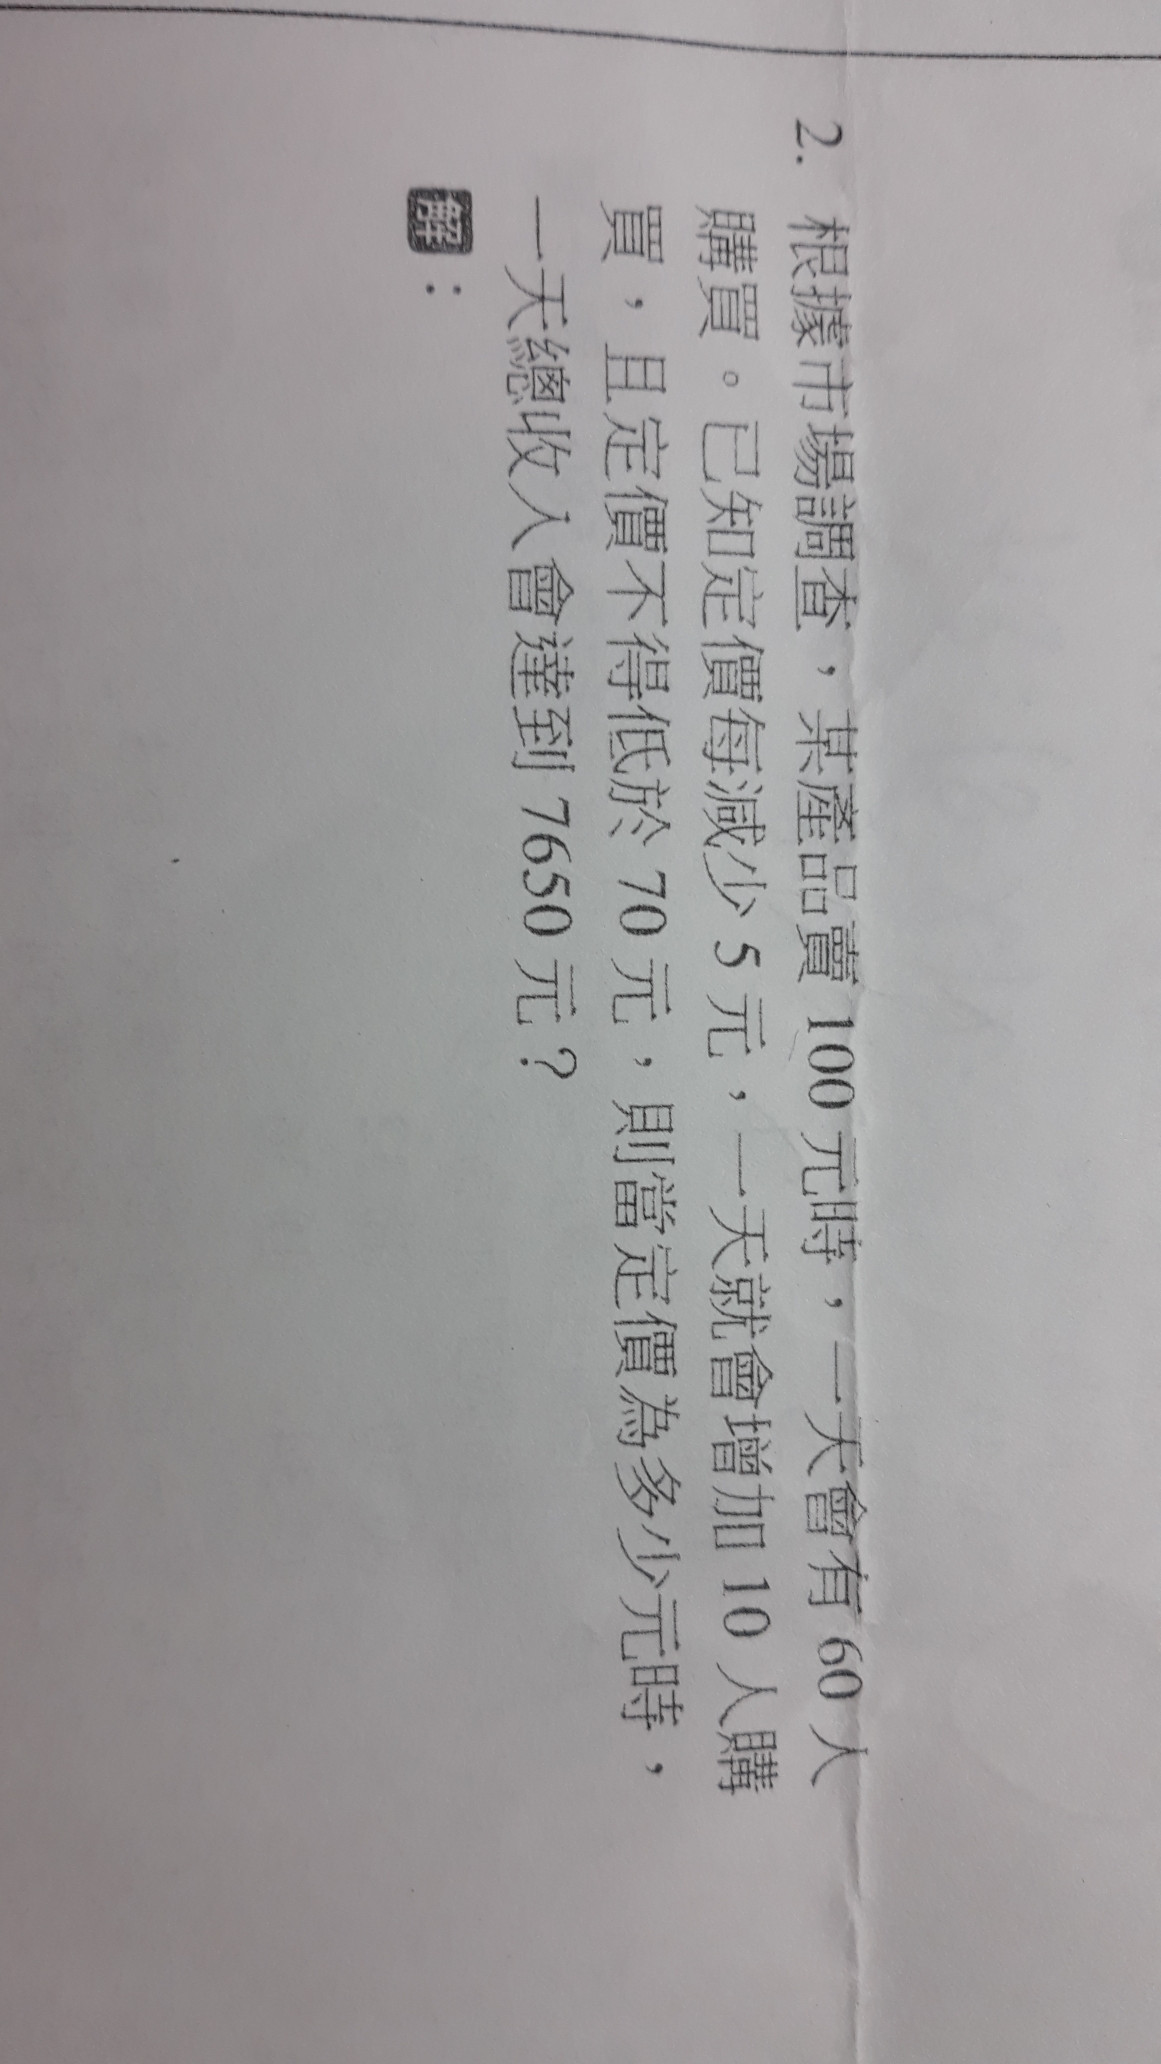 2. 根據市場調查，某產品賣 100 元時，一天會有 60 人
購買。已知定價每減少 5 元，一天就會增加 10 人購
買，且定價不得低於 70 元，則當定價為多少元時，
一天總收入會達到 7650 元？
解：